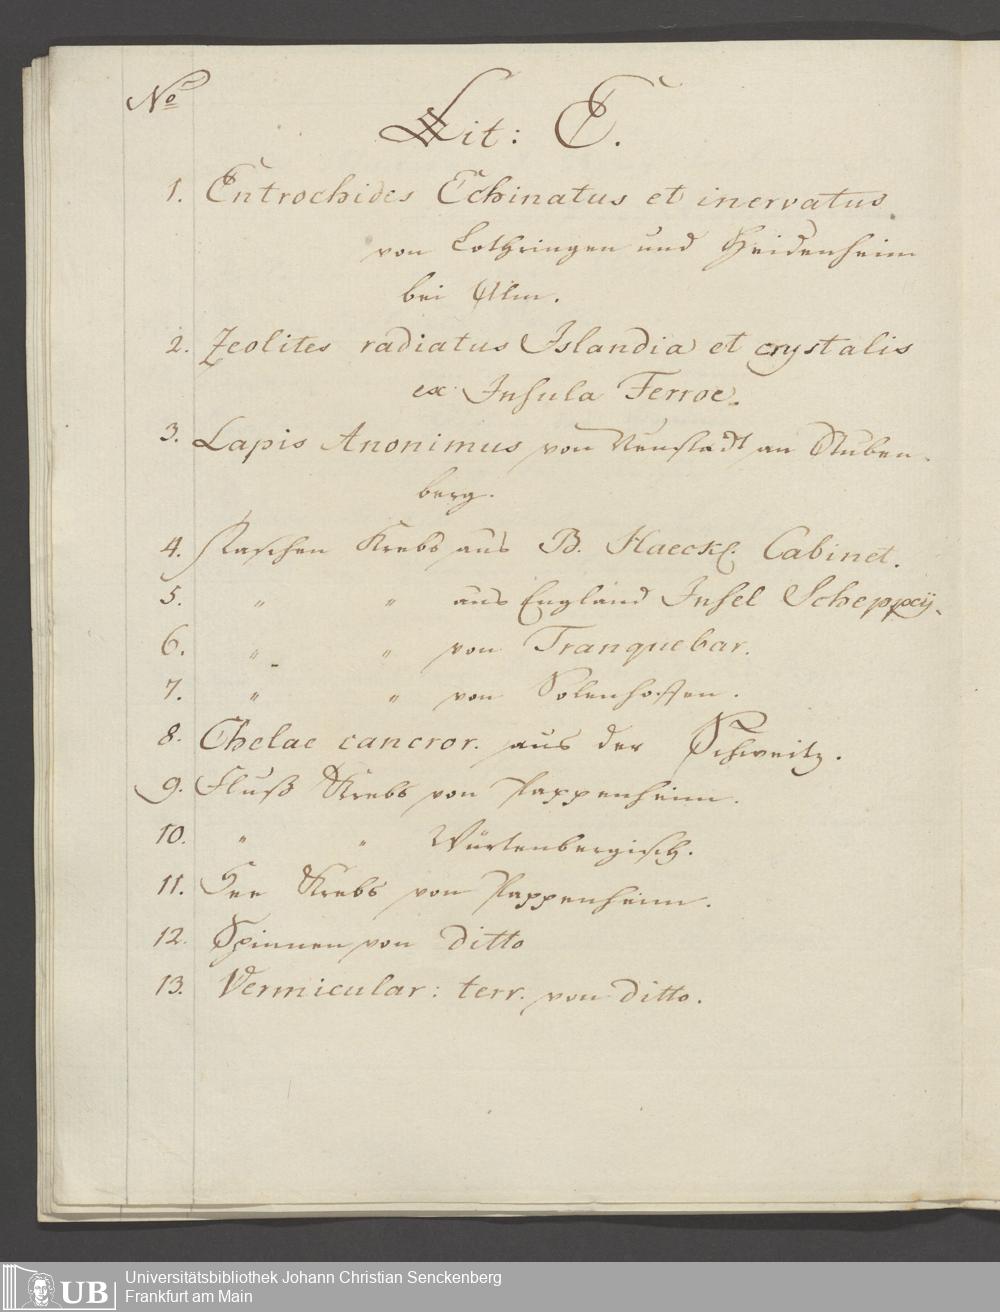 No
Lit: E.
1. Entrochides Echinatus et inervatus
von Lothringen und Heidenheim
bei Ulm.
2. Zeolites radiatus Islandia et crystalis
ex Insula Ferroe.
3. Lapis Anonimus von Neustadt an Stuben-
berg.
4. Taschen Krebs aus B. Haeck: Cabinet.
5. " " aus England Insel Scheppeÿ.
6. " " von Tranquebar.
7. " " von Solenhoffen.
8. Chelae cancror. aus der Schweitz.
9. Fluß Krebs von Pappenheim.
10. " " Würtenbergisch.
11. See Krebs von Pappenheim.
12. Spinnen von ditto
13. Vermicular: terr. von ditto.
UB
Universitätsbibliothek Johann Christian Senckenberg
Frankfurt am Main